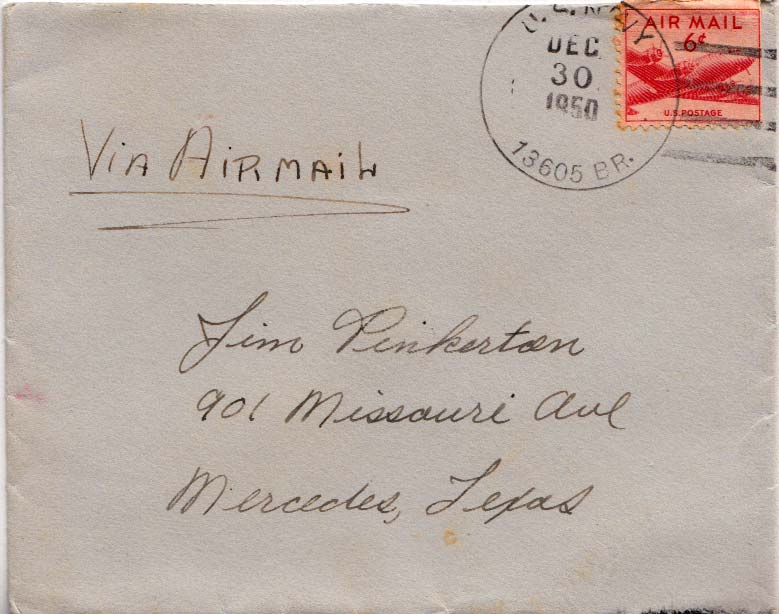 U.S. NAVY
DEC
30
1950
13605 BR.
AIR MAIL
6¢
U.S. POSTAGE
Via AIRMAIL
Jim Pinkerton
901 Missouri Ave
Mercedes, Texas